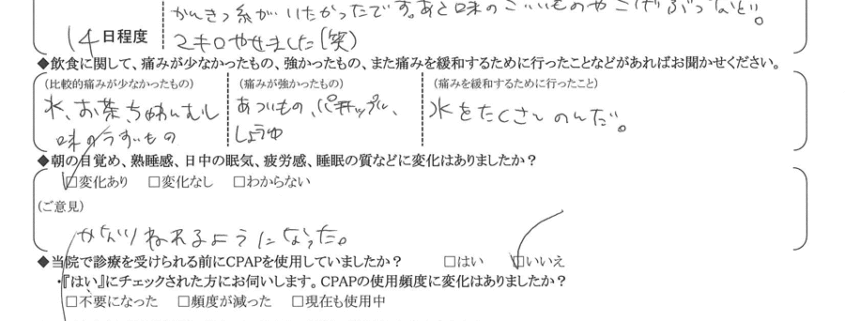 かんきつ系がいたかったです。あと味のこいものやこげぶつなど。
14日程度
2キロやせました(笑)
◆飲食に関して、痛みが少なかったもの、強かったもの、また痛みを緩和するために行ったことなどがあればお聞かせください。
(比較的痛みが少なかったもの) (痛みが強かったもの) (痛みを緩和するために行ったこと)
水、お茶、ちゃわんむし あついもの、パイナップル、 水をたくさんのんだ。
味のうすいもの しょうゆ
◆朝の目覚め、熟睡感、日中の眠気、疲労感、睡眠の質などに変化はありましたか?
☑変化あり □変化なし □わからない
(ご意見)
かなりねれるようになった。
◆当院で診療を受けられる前にCPAPを使用していましたか? □はい ☑いいえ
・『はい』にチェックされた方にお伺いします。CPAPの使用頻度に変化はありましたか?
□不要になった □頻度が減った □現在も使用中